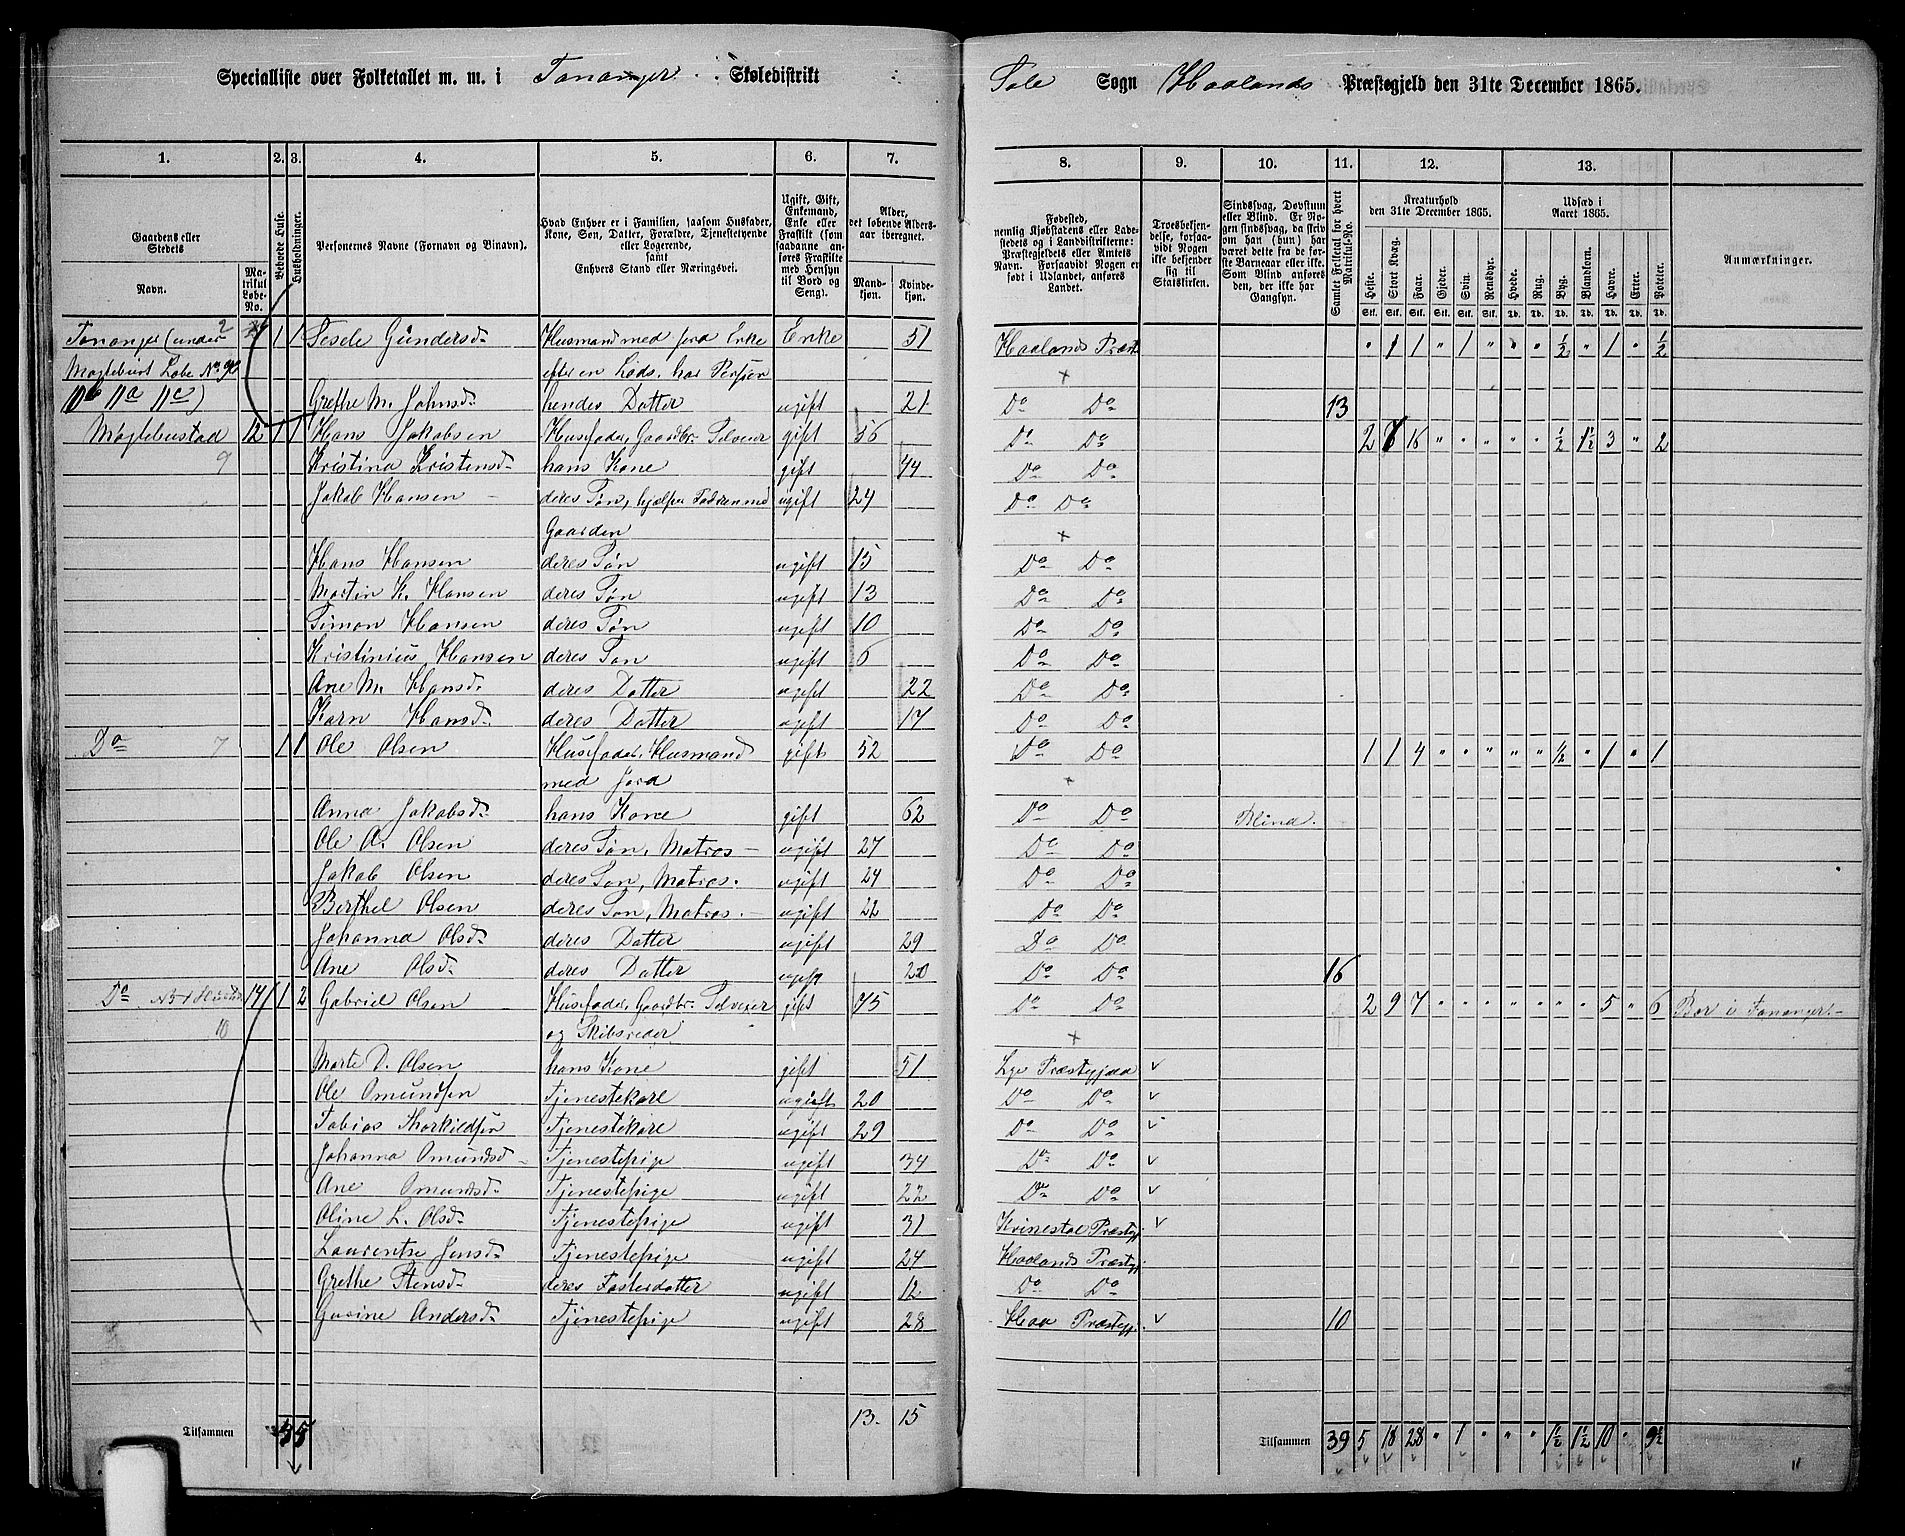 Specialliste over Folketallet m. m. i Tananger Skoledistrikt
Sole Sogn Haalands Præstegjeld den 31te December 1865.
1. 2. 3. 4. 5. 6. 7. 8. 9. 10. 11. 12. 13.
Gaardens eller Stedets
Navn.
Matrikul Løbe-No.
Beboede Huse.
Husholdninger.
Personernes Navne (Fornavn og Binavn).
Hvad Enhver er i Familien, saasom Husfader, Kone, Søn, Datter, Forældre, Tjenestetyende eller Logerende, samt Enhvers Stand eller Næringsvei.
Ugift, Gift, Enkemand, Enke eller Fraskilt (som saadanne anføres Fraskilte med Hensyn til Bord og Seng).
Alder, det løbende Aldersaar iberegnet.
Mandkjøn. Kvindekjøn.
Fødested, nemlig Kjøbstadens eller Ladestedets og i Landdistrikterne: Præstegjeldets eller Amtets Navn. Forsaavidt Nogen er født i Udlandet, anføres Landet.
Troesbekjendelse, forsaavidt Nogen ikke bekjender sig til Statskirken.
Sindssvag, Døvstum eller Blind. Er Nogen sindssvag, da skriv om han (hun) har været dette fra de første Barneaar eller ikke. Som Blind anføres den, der ikke har Gangsyn.
Samlet Folketal for hvert Matrikul-No.
Kreaturhold den 31te December 1865.
Heste. Stort Kvæg. Faar. Gjeder. Svin. Rensdyr.
Udsæd i Aaret 1865.
Hvede. Rug. Byg. Blandkorn. Havre. Erter. Poteter.
Anmærkninger.
Stk. Stk. Stk. Stk. Stk. Stk. Td. Td. Td. Td. Td. Td. Td.
Tananger (under 2 1 1 Sesele Gundersd. Husmand med jord Enke Enke 51 Haalands Præst. " 1 1 " 1 " " " ½ " 1 " ½
Møglebust Løbe No. efter en Lods, har
10b 11a 11c) Grethe M. Johnsd. hendes Datter ugift 21 Do Do 13
Møglebustad 12 1 1 Hans Jakobsen Husfader, Gaardbr. Selveier gift 56 Do Do 2 7 16 " " " " " ½ 1½ 3 " 2
9 Kristina Kristensd. hans Kone gift 44 Do Do
Jakob Hansen deres Søn, hjælper Faderen med ugift 24 Do Do
Gaarden
Hans Hansen deres Søn ugift 15 Do Do
Martin K. Hansen deres Søn ugift 13 Do Do
Simon Hansen deres Søn ugift 10 Do Do
Kristinius Hansen deres Søn ugift 6 Do Do
Ane M. Hansd. deres Datter ugift 22 Do Do
Karn Hansd. deres Datter ugift 17 Do Do
Do 7 1 1 Ole Olsen Husfader, Husmand gift 52 Do Do 1 1 4 " " " " " ½ " 1 " 1
med jord
Anna Jakobsd. hans Kone gift 62 Do Do Blind.
Ole A. Olsen deres Søn, Matros ugift 27 Do Do
Jakob Olsen deres Søn, Matros. ugift 24 Do Do
Berthel Olsen deres Søn, Matros. ugift 22 Do Do
Johanna Olsd. deres Datter ugift 29 Do Do
Ane Olsd. deres Datter ugift 20 Do Do 16
Do 14 1 2 Gabriel Olsen Husfader, Gaardbr. Selveier gift 45 Do Do 2 9 7 " " " " " " " 5 " 6 Bor i Tananger
10 og Skibsreder
Marte D. Olsen hans Kone gift 51 Lye Præstegjæld
Ole Omundsen Tjenestekarl ugift 20 Do Do
Tobias Thorkildsen Tjenestekarl ugift 29 Do Do
Johanna Omundsd. Tjenestepige ugift 34 Do Do
Ane Omundsd. Tjenestepige ugift 22 Do Do
Oline L. Olsd. Tjenestepige ugift 31 Præstegj.
Laurentse Jensd. Tjenestepige ugift 24 Haalands Præstegj.
Grethe Stensd. deres Fosterdatter ugift 12 Do Do
Gurine Andersd. Tjenestepige ugift 28 Haa Præstegj. 10
Tilsammen 3 5 13. 15
Tilsammen 39 5 18 28 " 1 " " " 1½ 1½ 10 " 9½